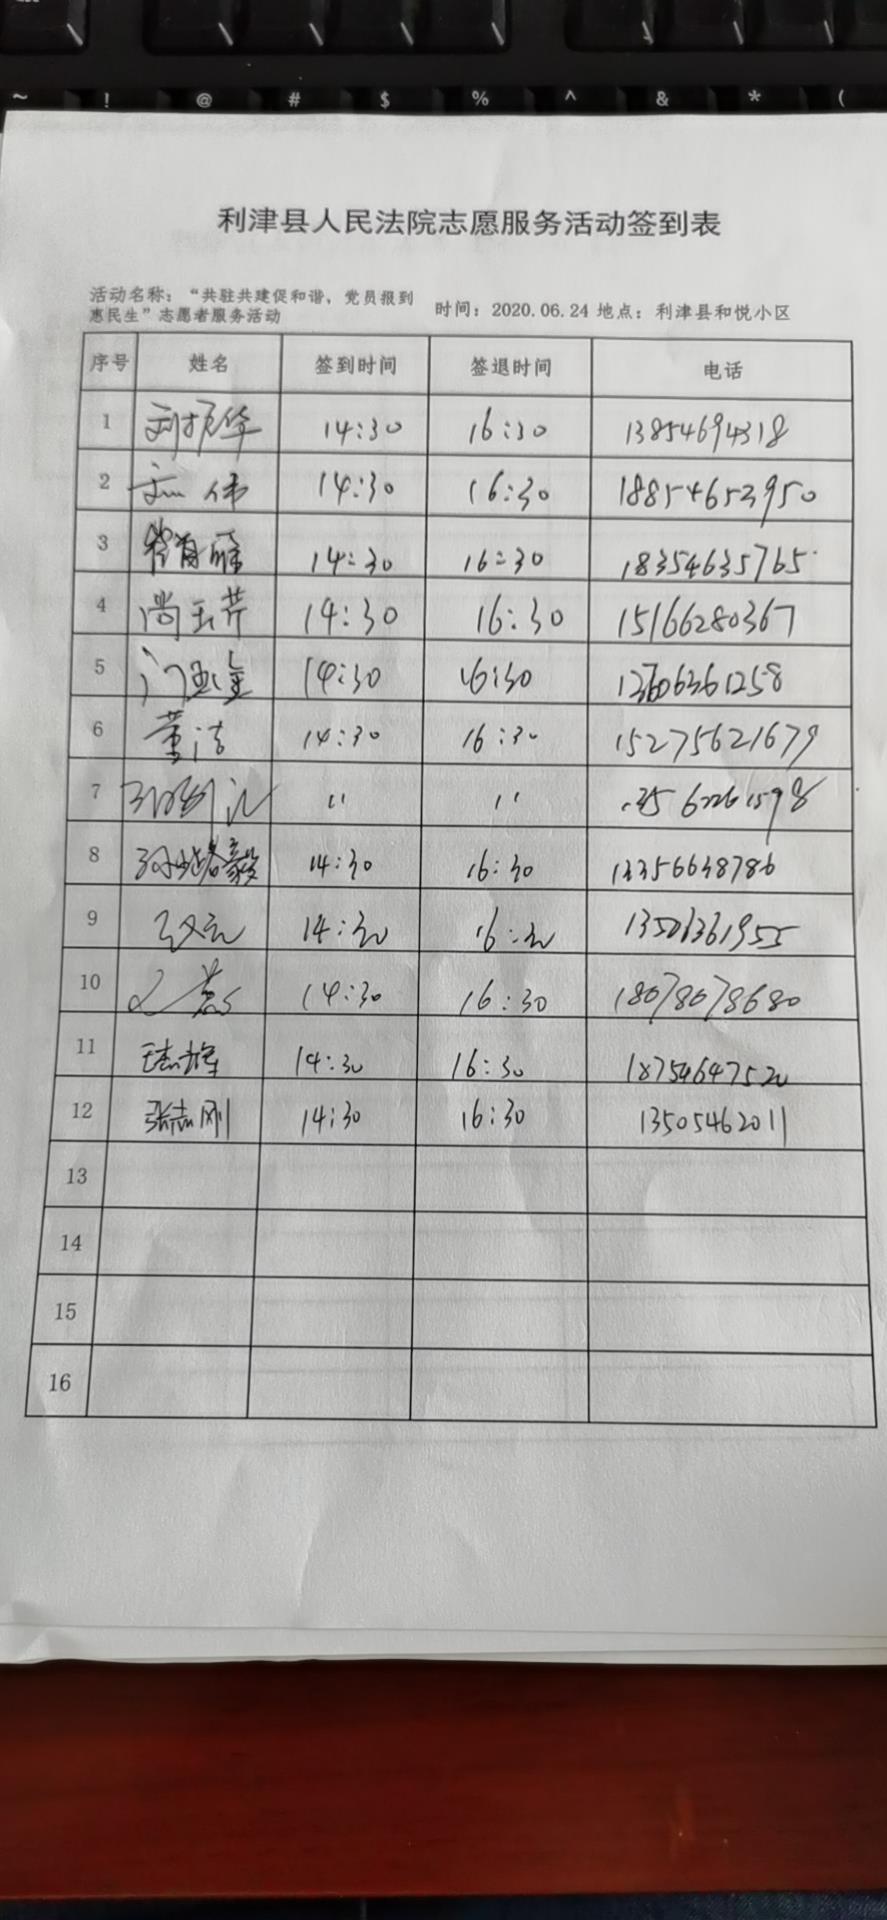 ~ ! @ # $ % ^ & * (
利津县人民法院志愿服务活动签到表
活动名称：“共驻共建促和谐，党员报到
惠民生”志愿者服务活动
时间：2020.06.24 地点：利津县和悦小区
序号 姓名 签到时间 签退时间 电话
1 刘振华 14:30 16:30 13854694318
2 伟 14:30 16:30 18854653950
3 14:30 16:30 18354635765
4 尚玉芹 14:30 16:30 15166280367
5 14:30 16:30
6 董洁 14:30 16:30 15275621679
7 〃 〃
8 14:30 16:30 13356638786
9 14:30 16:30
10 14:30 16:30 18678678680
11 14:30 16:30
12 张志刚 14:30 16:30 13505462011
13
14
15
16